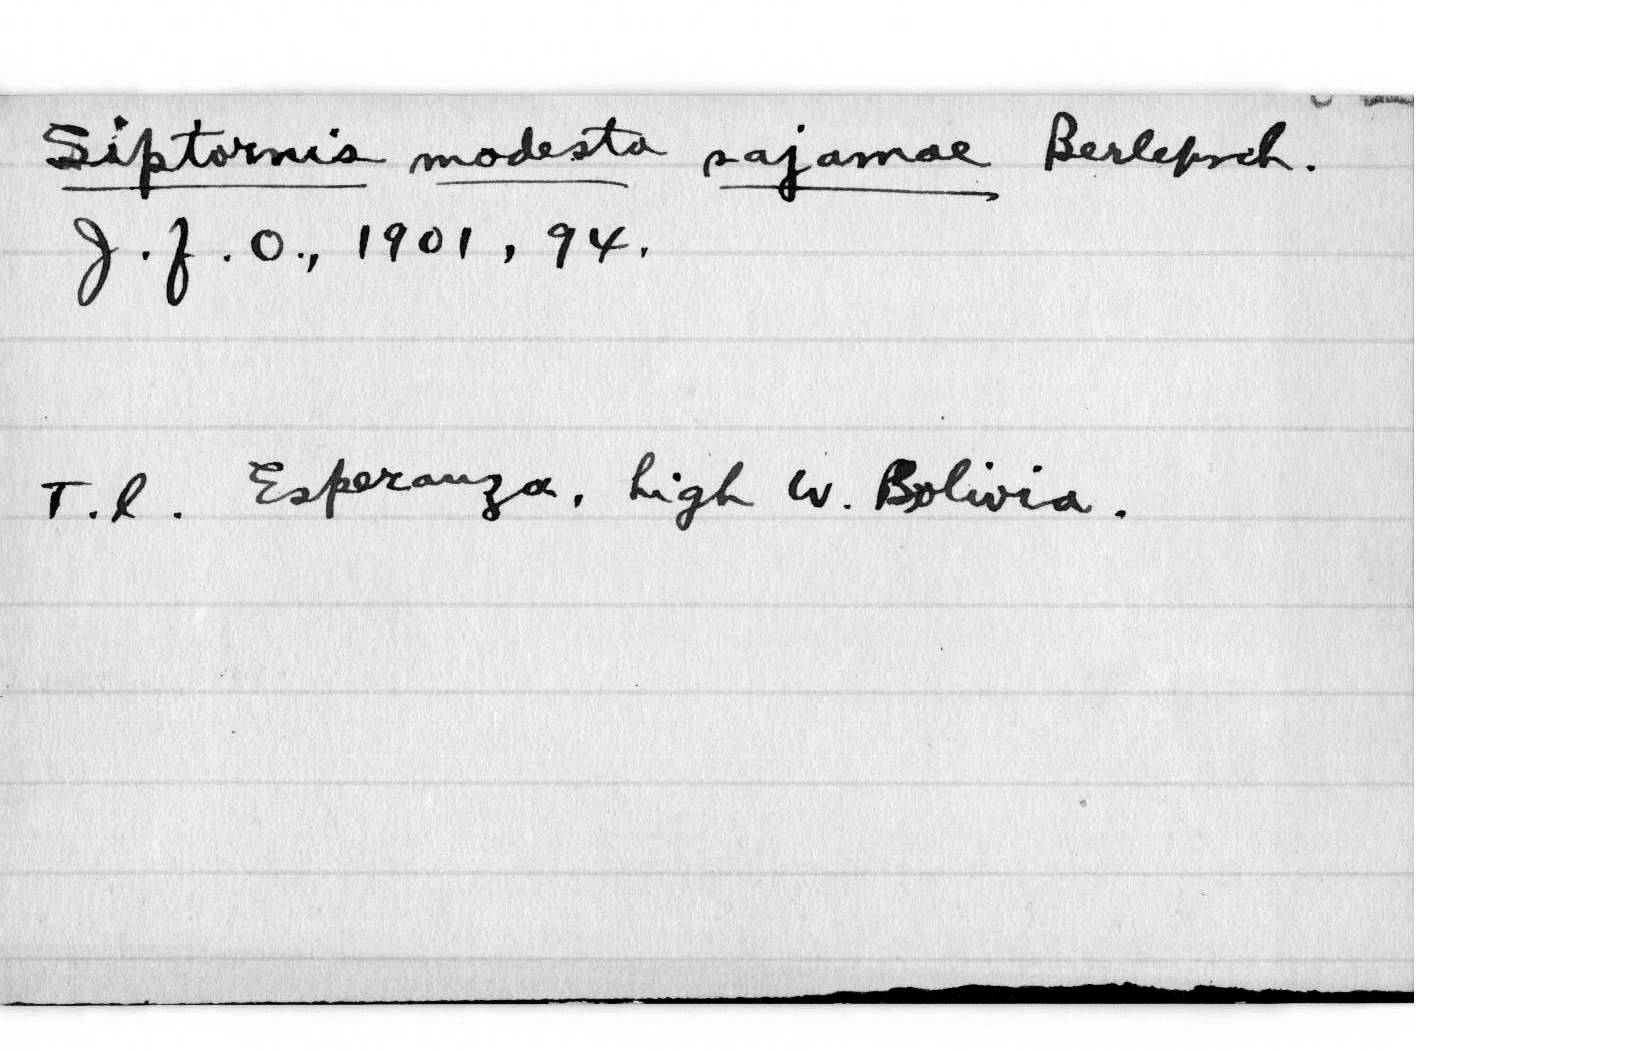 Siptornis modesta sajamae Berlepsch.
J.f.O., 1901, 94.
T.l. Esperanza, high W. Bolivia.